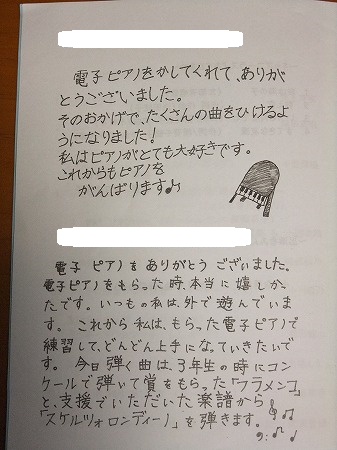 電子ピアノをかしてくれて、ありが
とうございました。
そのおかげで、たくさんの曲をひけるよ
うになりました!
私はピアノがとても大好きです。
これからもピアノを
がんばります♪
電子ピアノをありがとうございました。
電子ピアノをもらった時、本当に嬉しか
たです。いつもの私は、外で遊んでいま
す。これから私は、もらった電子ピアノで
練習して、どんどん上手になっていきたいで
す。今日弾く曲は、3年生の時にコン
クールで弾いて賞をもらった「フラメンコ」
と、支援でいただいた楽譜から
「スケルツォロンディーノ」を弾きます。